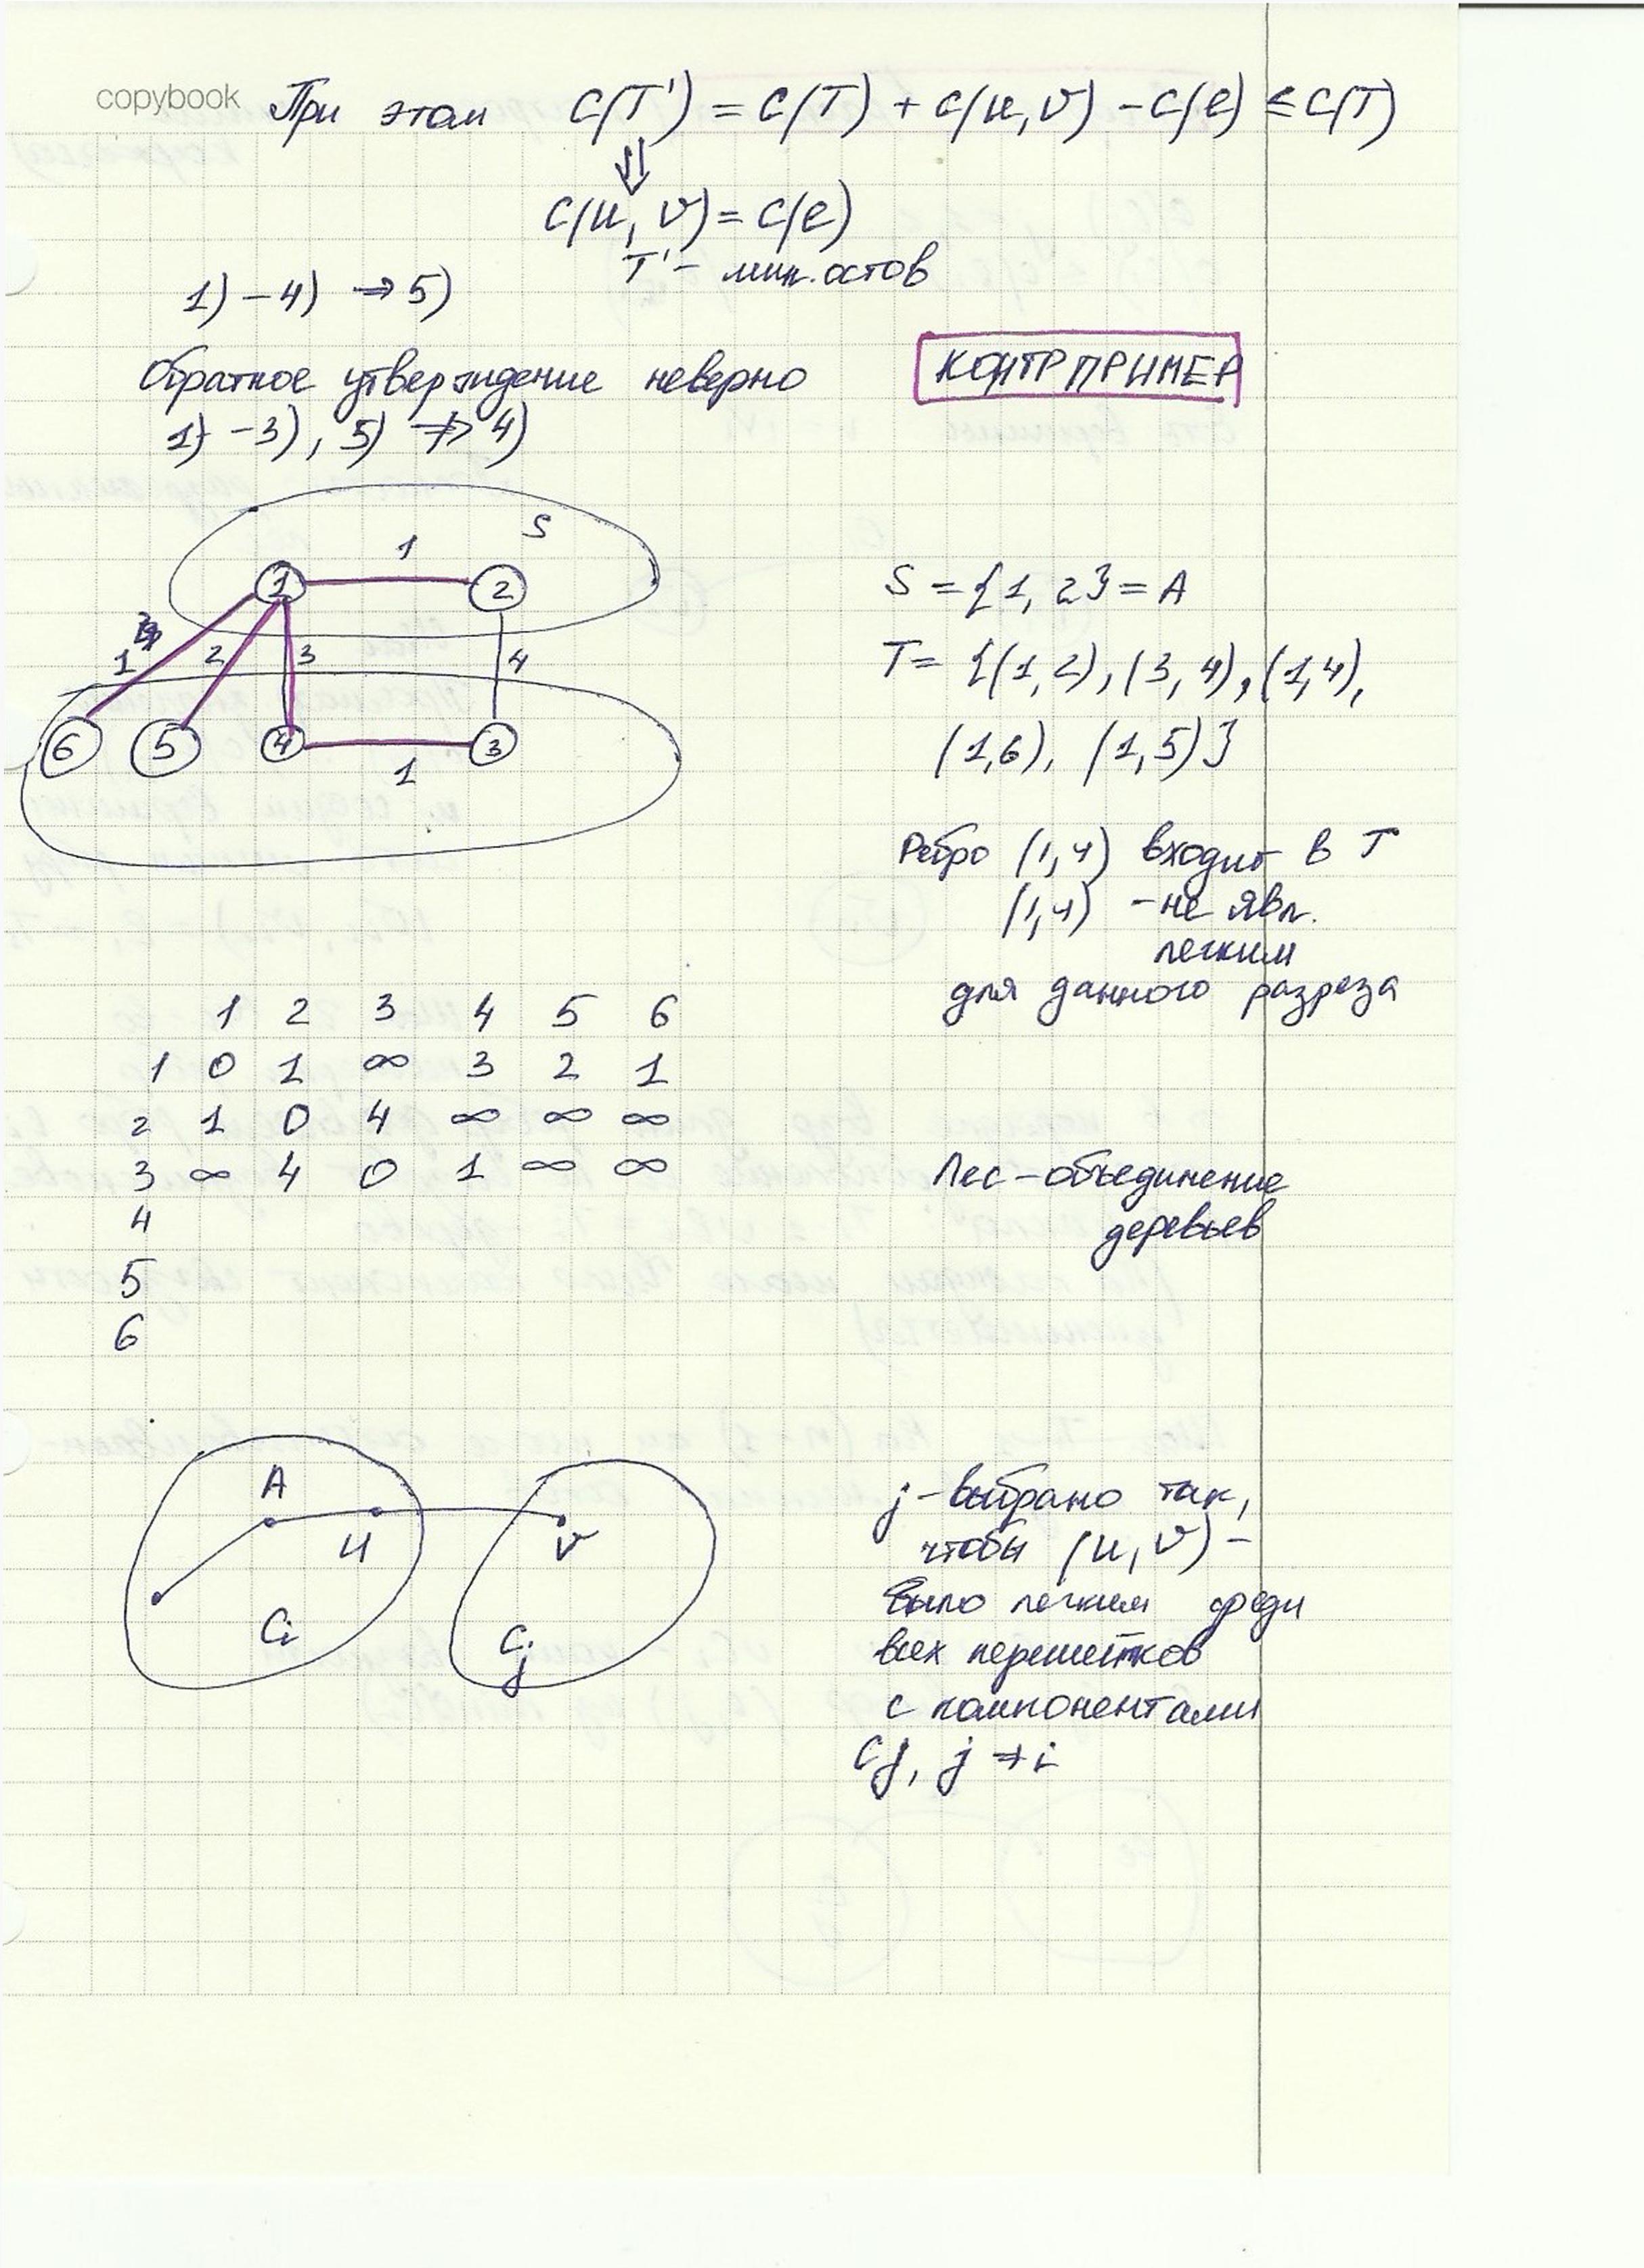 copybook
При этом C(T') = C(T) + C(u, v) - C(e) ≤ C(T)
⇓
C(u, v) = C(e)
T' - мин. остов
1) - 4) ⇒ 5)
Обратное утверждение неверно
КОНТРПРИМЕР
1) - 3), 5) ⇏ 4)
S
1
1
2
1
2
3
4
6
5
4
3
1
S = {1, 2} = A
T = {(1, 2), (3, 4), (1, 4),
(1, 6), (1, 5)}
Ребро (1, 4) входит в T
(1, 4) - не явл.
легким
для данного разреза
1 2 3 4 5 6
1 0 1 ∞ 3 2 1
2 1 0 4 ∞ ∞ ∞
3 ∞ 4 0 1 ∞ ∞
4
5
6
Лес - объединение
деревьев
A
u
v
Ci
Cj
j - выбрано так,
чтобы (u, v) -
было легким среди
всех перешейков
с компонентами
Cj, j ≠ i